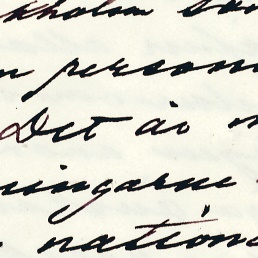 kholm som
n person
Det är
ningarne
nation